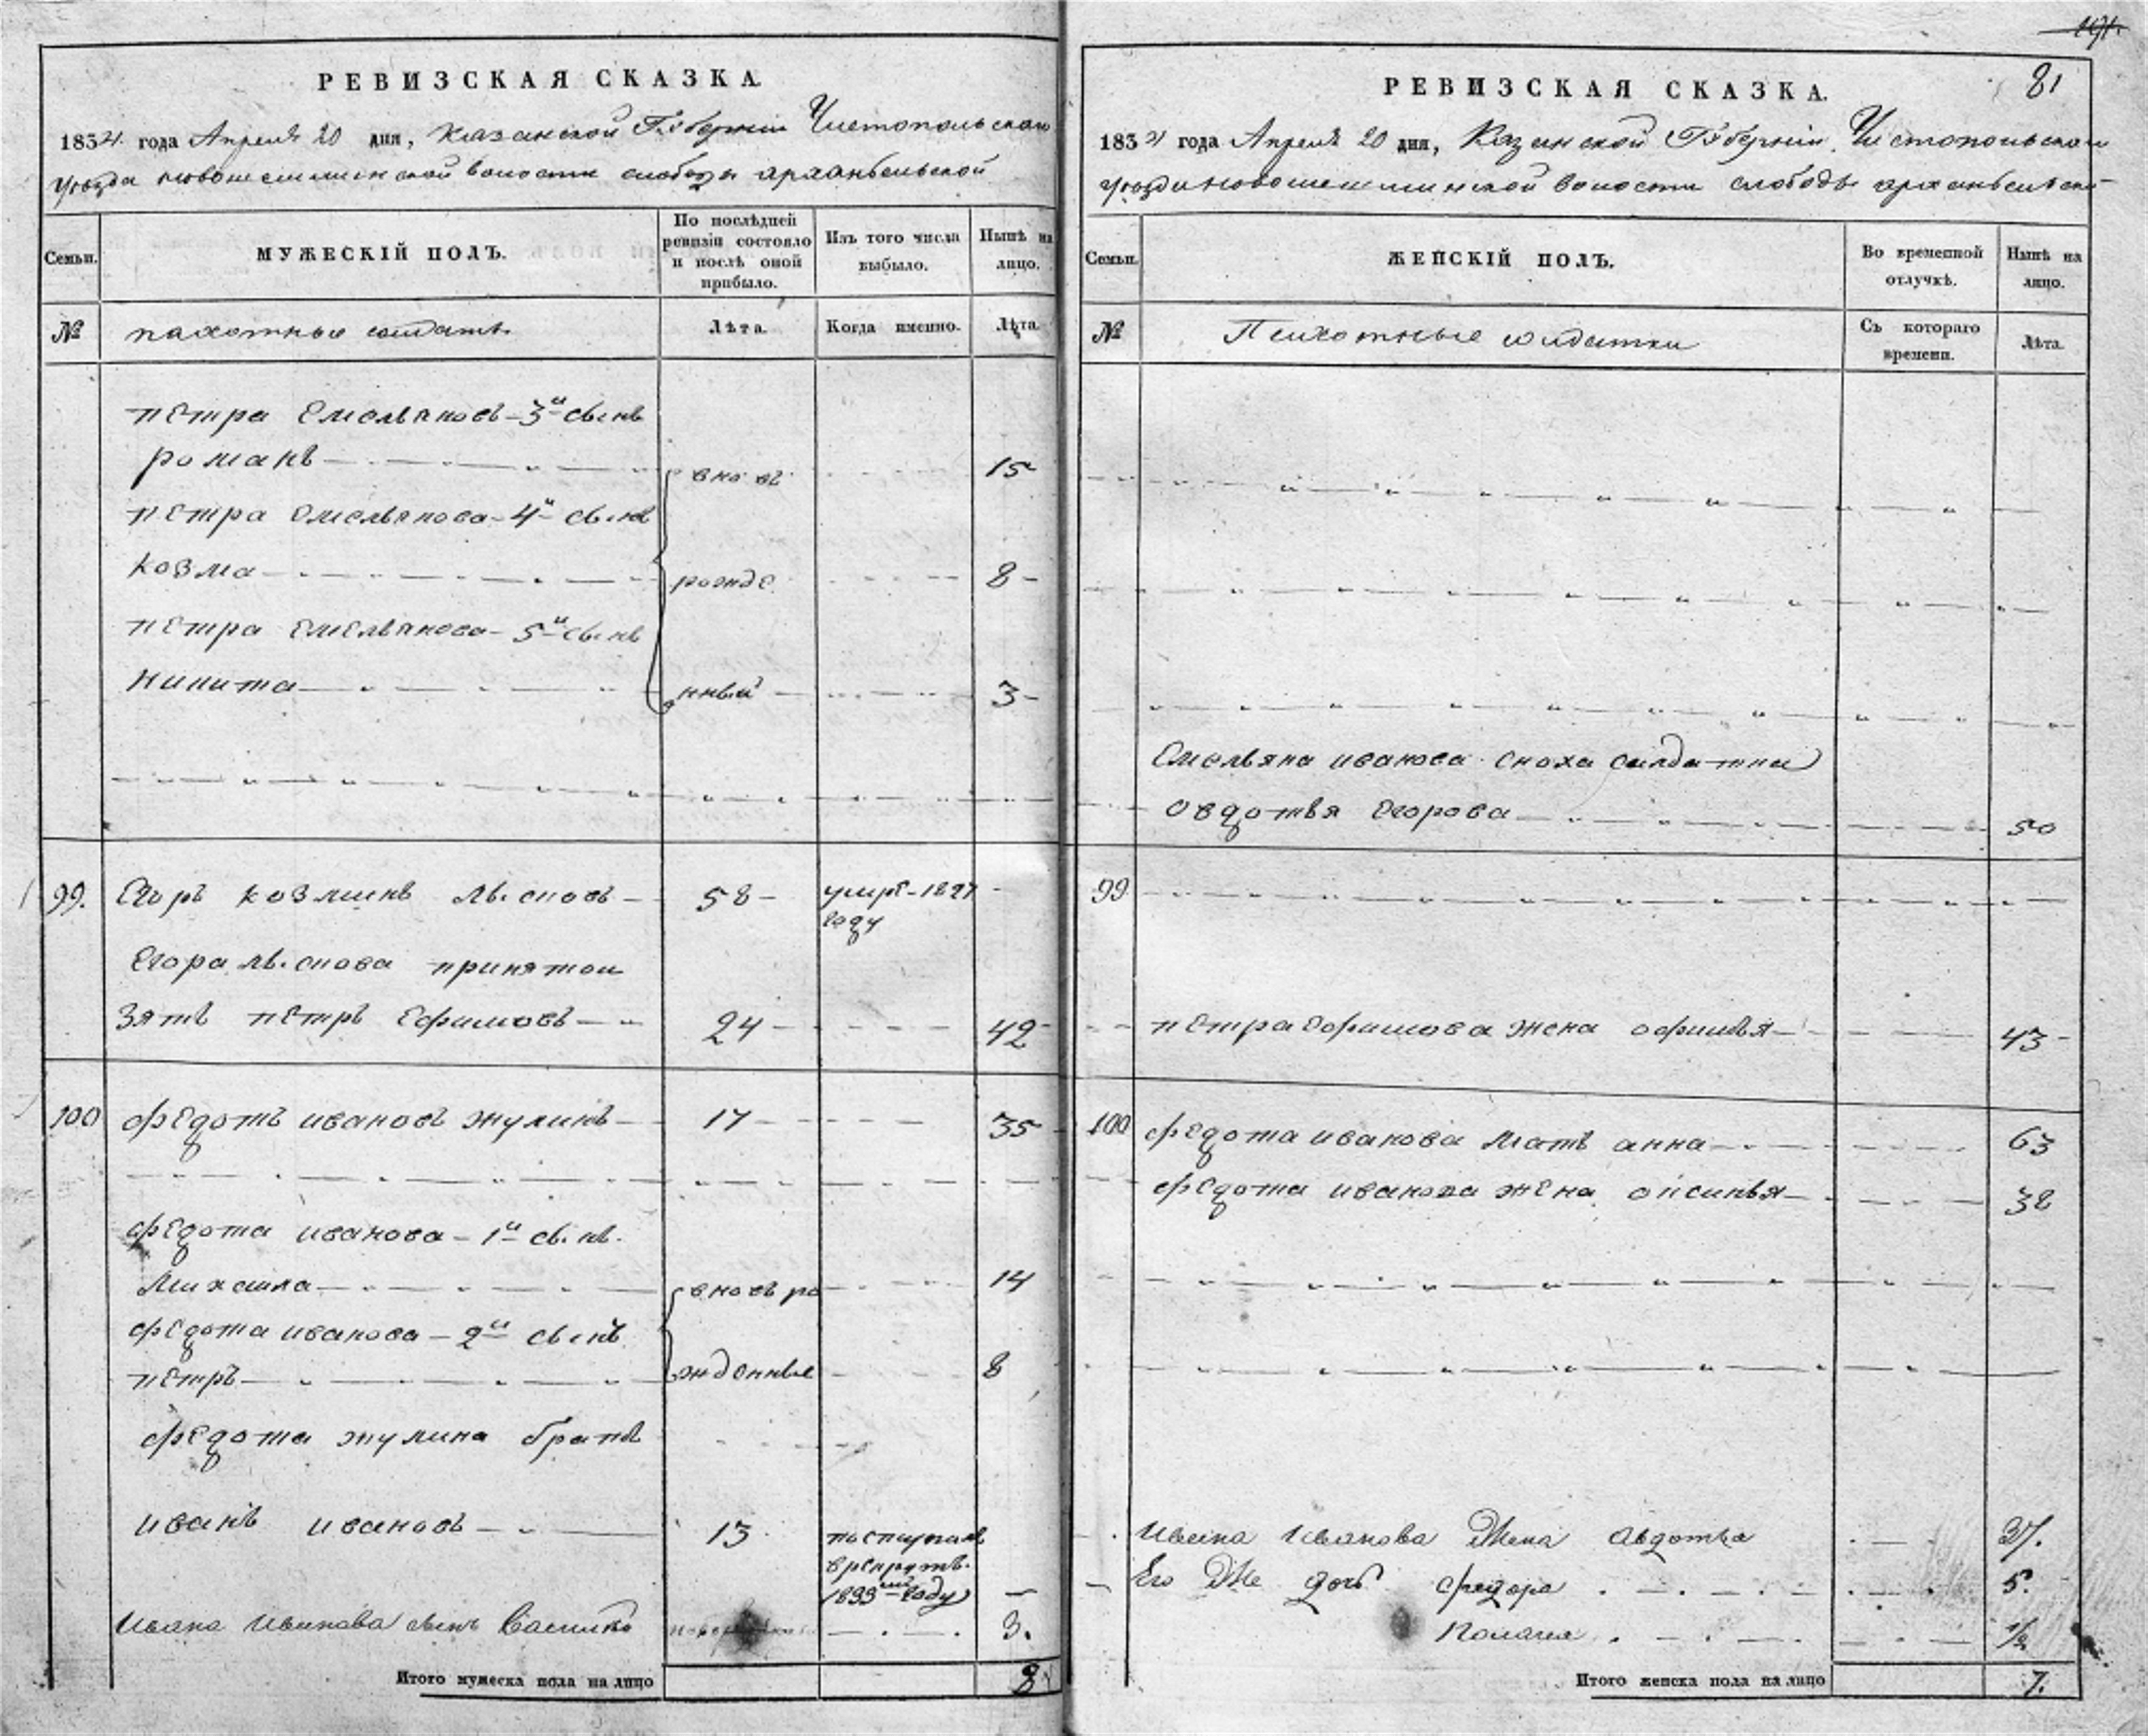 РЕВИЗСКАЯ СКАЗКА.
1834 года Апреля 20 дня, Казанской Губернiи Чистопольскаго
уѣзда новошешминской волости слободы арханьгельской
Семьи.
МУЖЕСКІЙ ПОЛЪ.
По послѣдней ревизіи состояло и послѣ оной прибыло.
Изъ того числа выбыло.
Нынѣ на лицо.
№
пахотные солдатъ
Лѣта.
Когда именно.
Лѣта.
петра Емельяновъ – 3й сынъ
романъ вновь 15
петра Емельянова – 4й сынъ
козма рожде 8
петра Емельянова – 5й сынъ
никита нный 3
99. Егоръ козминъ лысковъ 58 умре 1827
году
Егора лыскова принятои
зять петръ Ефимовъ 24 42
100 федотъ ивановъ жулинъ 17 35
федота иванова – 1й сынъ
михаила вновь ро 14
федота иванова – 2й сынъ
петръ жденные 8
федота жулина братъ
иванъ ивановъ 13 поступилъ
врекруты
1833 году
Ивана Иванова сынъ Василiй 3.
Итого мужеска пола на лицо 8
191.
81
РЕВИЗСКАЯ СКАЗКА.
1834 года Апреля 20 дня, Казанской Губернiи Чистопольскаго
уѣзда новошешминской волости слободы арханьгельской
Семьи.
ЖЕНСКІЙ ПОЛЪ.
Во временной отлучкѣ.
Нынѣ на лицо.
№
Пахотные солдатки
Съ котораго времени.
Лѣта.
Емельяна иванова сноха салдатка
овдотья Егорова 50
99
петра Ефимова жена офимья 43
100 федота иванова мать анна 63
федота иванова жена оксинья 38
Ивана Иванова Жена Авдотья 37.
Его Же дочь федора 5.
Полагея 1/2
Итого женска пола на лицо 7.